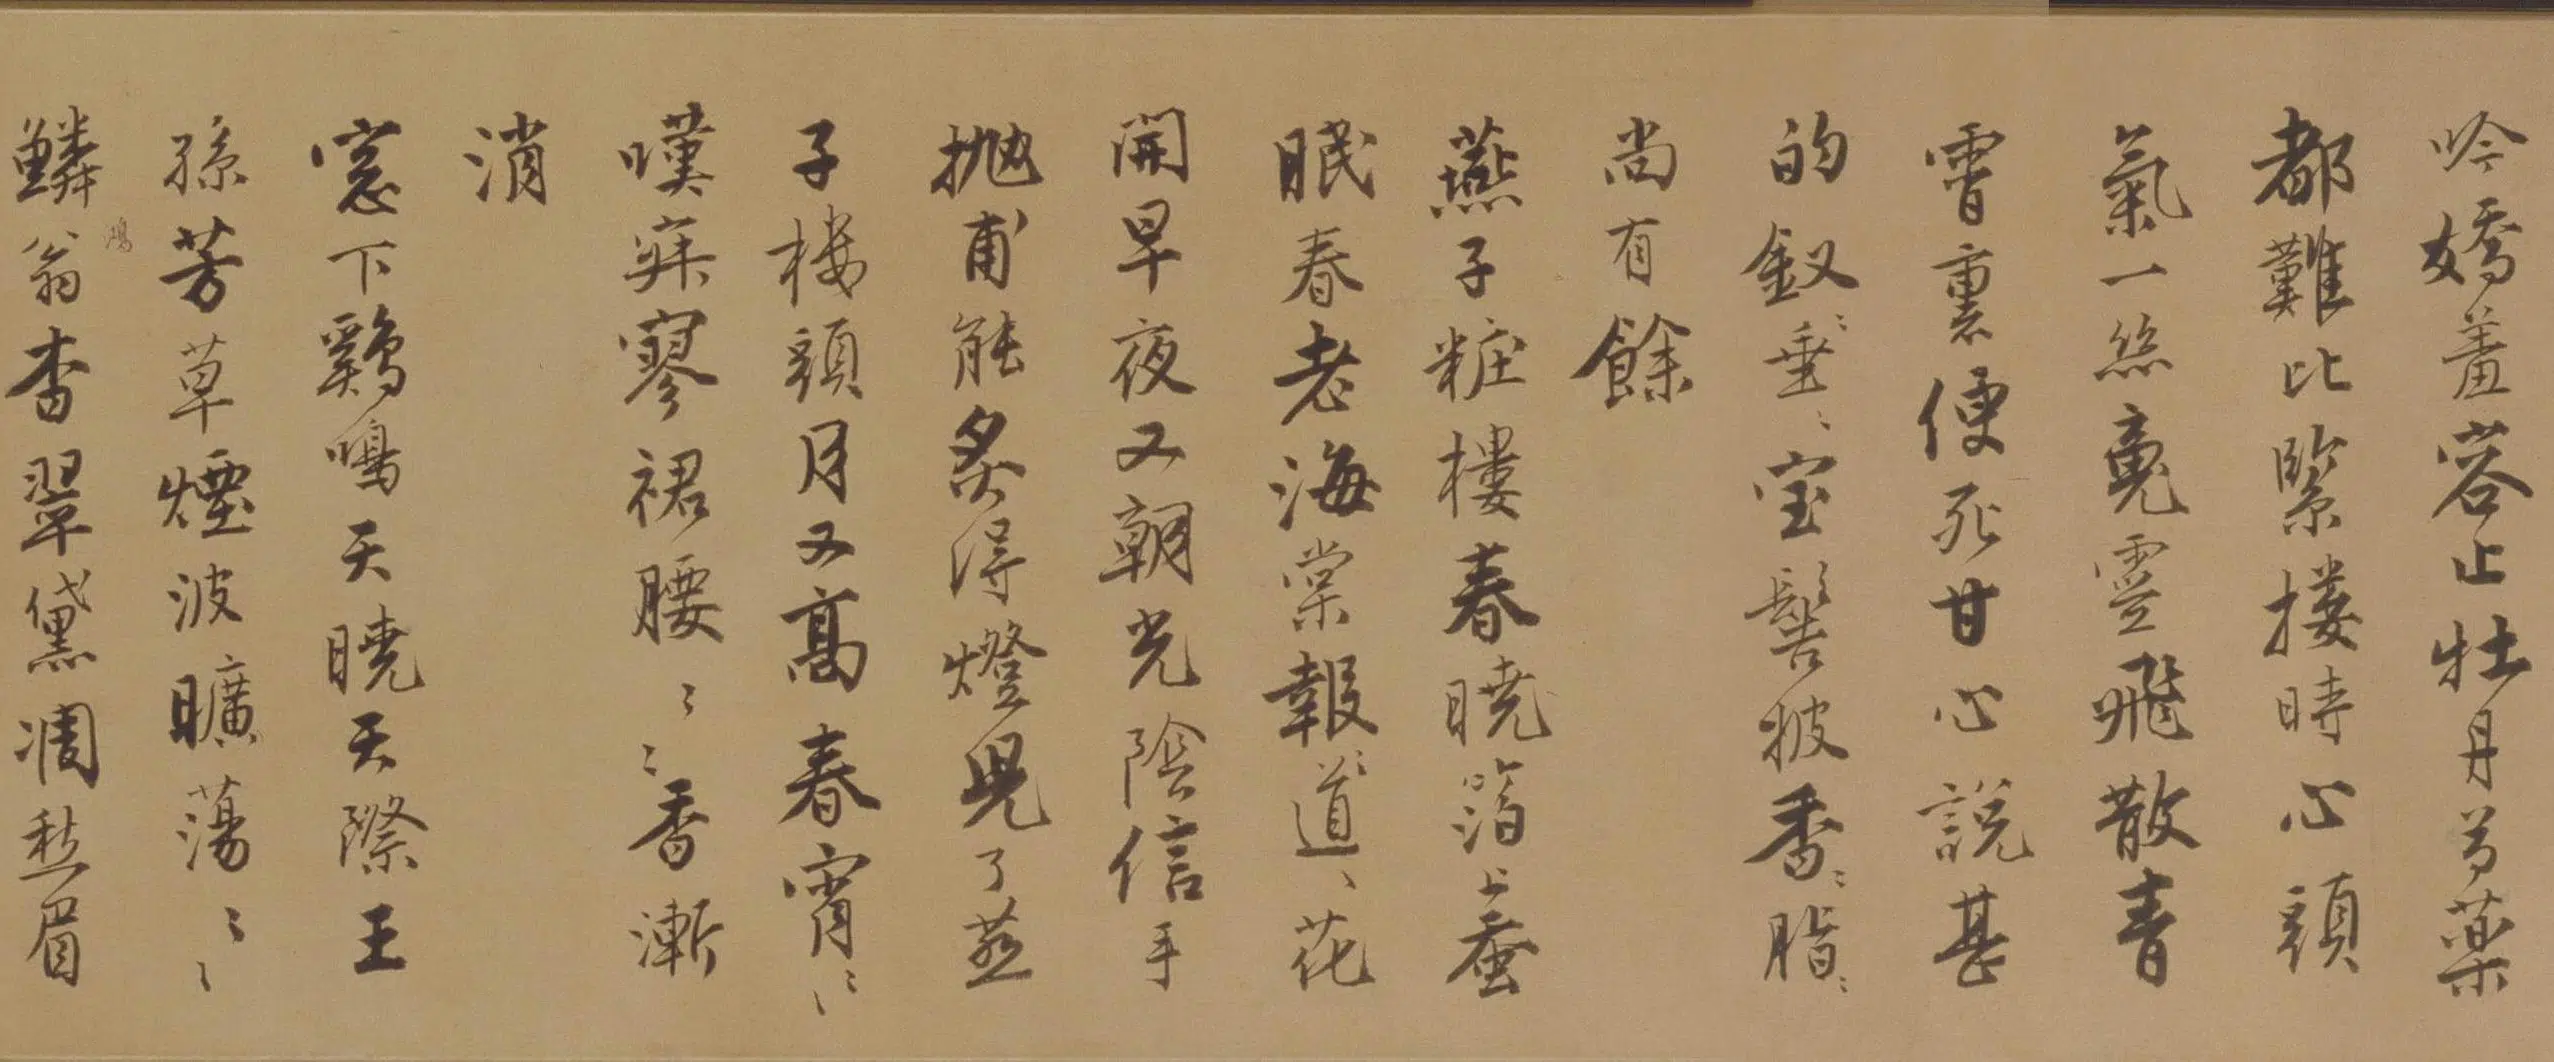 吟嬌羞容止牡丹芍藥
都難比緊摟時心頭
氣一絲魂靈飛散青
霄裏便死甘心說甚
的釵〻垂〻宝髻披香〻脂〻
尚有餘
燕子粧樓春曉箔上蚕
眠春老海棠報〻道〻花
開早夜又朝光陰信手
拋甫能炙得燈兒了燕
子樓頭月又高春宵〻〻
嘆寂寥裙腰〻〻香漸
消
窓下鷄鳴天曉天際王
孫芳草煙波曠蕩〻〻
鴻
鱗翁杳翠黛凋愁眉